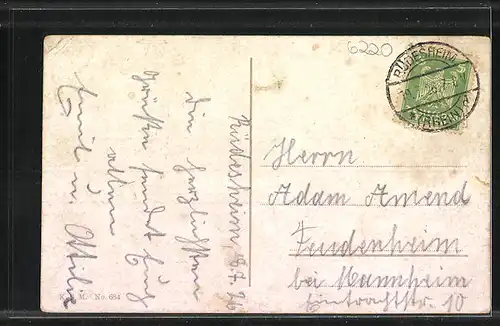 6220
RÜDESHEIM
(RHEIN)
Rüdesheim, 
die herzlichsten
Grüße sendet Euch
allen
Emil u. Ottilie
Herrn
Adam Amend
Feudenheim
bei Mannheim
Eintrachtstr. 10
No. 684